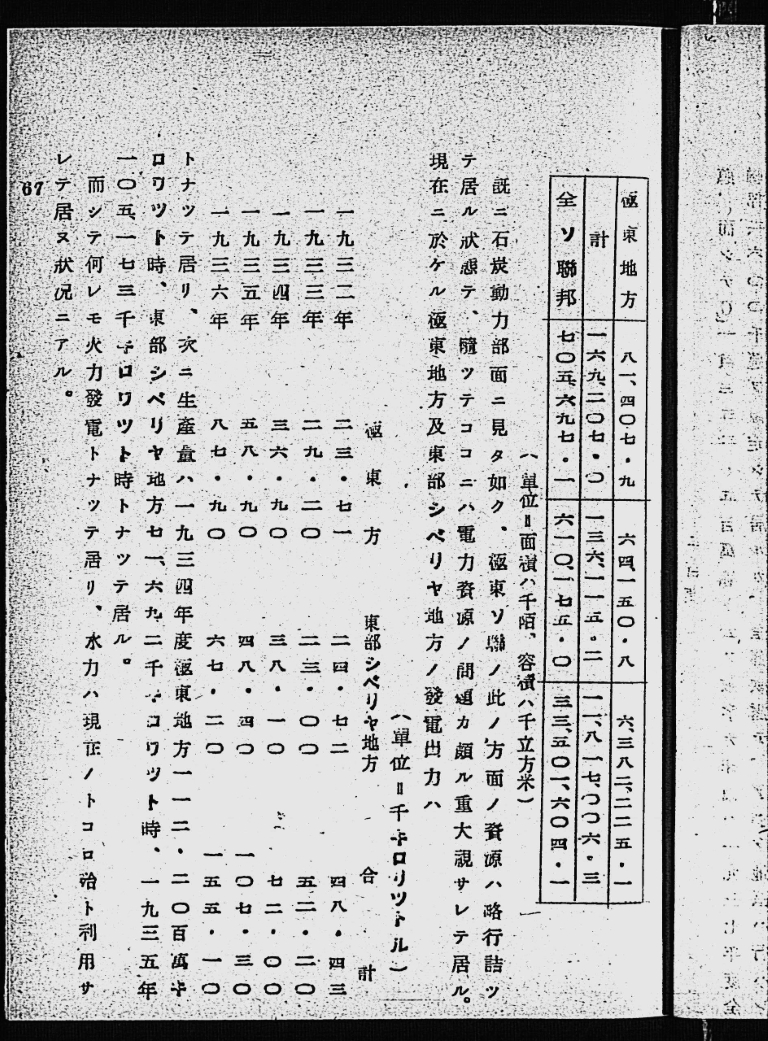 極東地方 八一、四〇七・九 六四、一五〇・八 六、三八二、二二五・一
計 一六九、二〇七・〇 一三六、一一五・二 一一、八一七、〇〇六・三
全ソ聯邦 七〇五、六九七・一 六一〇、一七五・〇 三三、五〇一、六〇四・一
(單位=面積ハ千陌、容積ハ千立方米)
既ニ石炭動力部面ニ見タ如ク、極東ソ聯ノ此ノ方面ノ資源ハ略行詰ツ
テ居ル狀態テ、隨ツテココニハ電力資源ノ問題カ頗ル重大視サレテ居ル。
現在ニ於ケル極東地方及東部シベリヤ地方ノ發電出力ハ
(單位=千キロリツトル)
極東方 東部シベリヤ地方 合計
一九三二年 二三・七一 二四・七二 四八・四三
一九三三年 二九・二〇 二三・〇〇 五二・二〇
一九三四年 三六・九〇 三八・一〇 七二・〇〇
一九三五年 五八・九〇 四八・四〇 一〇七・三〇
一九三六年 八七・九〇 六七・二〇 一五五・一〇
トナツテ居リ、次ニ生產量ハ一九三四年度極東地方一一二・二〇百萬キ
ロワツト時、東部シベリヤ地方七一、六九二千キロワツト時、一九三五年
一〇五、一七三千キロワツト時トナツテ居ル。
而シテ何レモ火力發電トナツテ居リ、水力ハ現在ノトコロ殆ト利用サ
レテ居ヌ狀況ニアル。
67